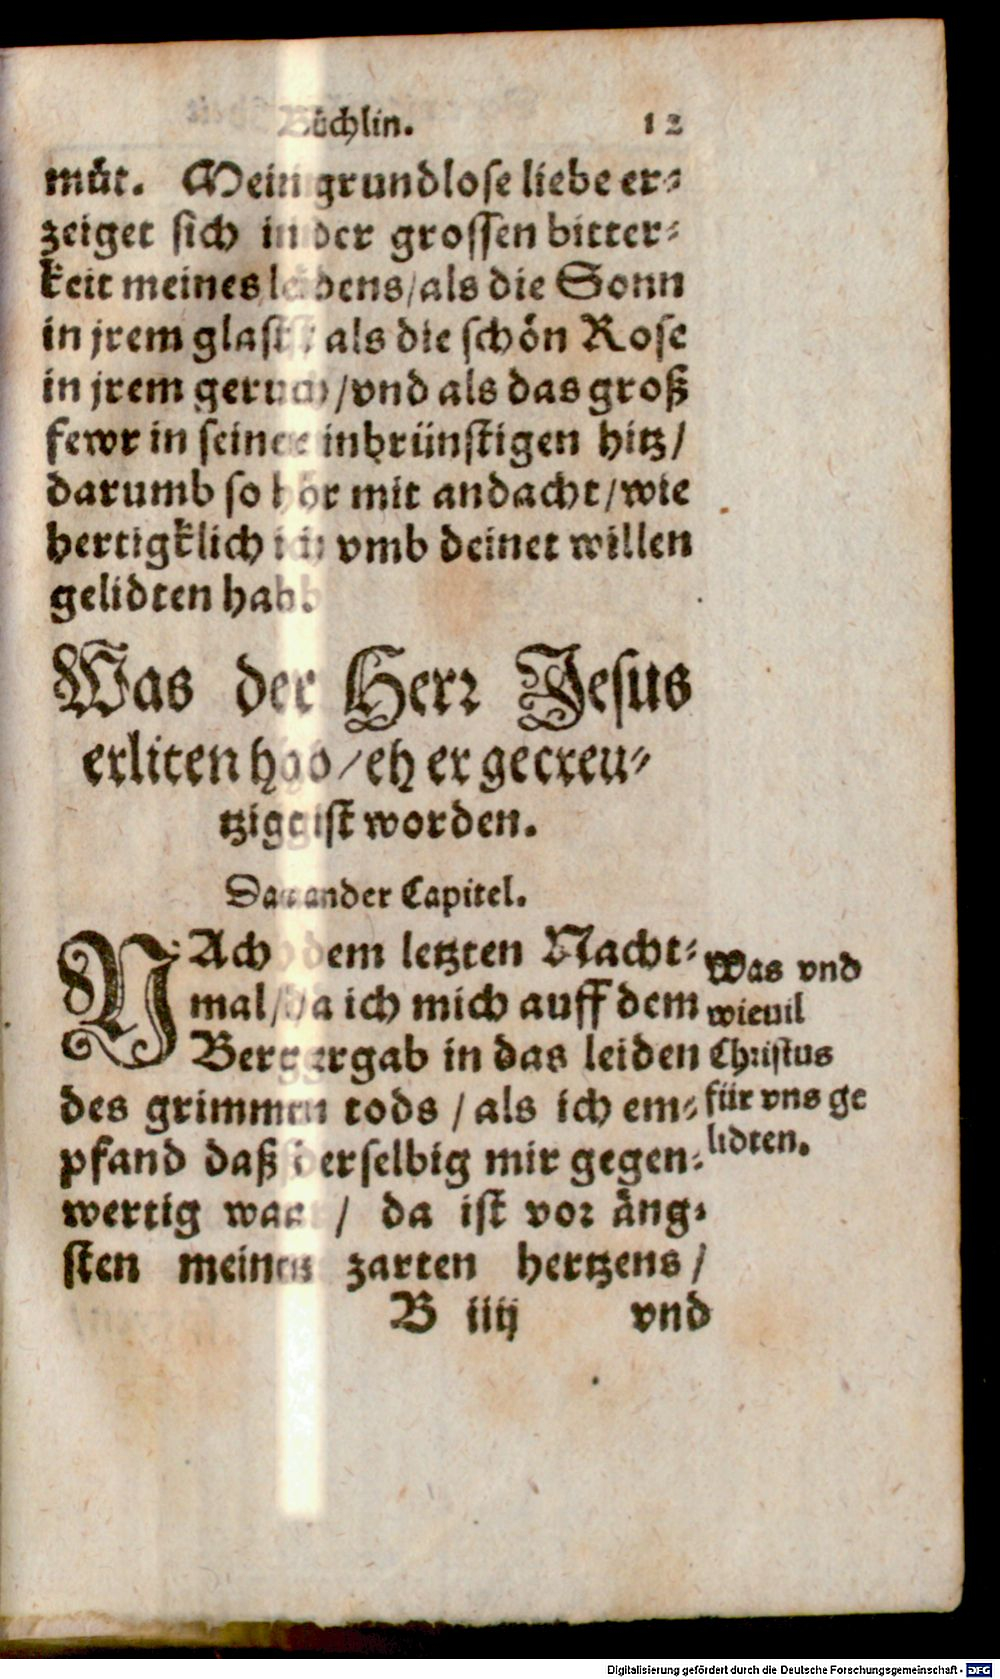 Büchlin. 12
můt. Mein grundlose liebe er⸗
zeiget sich in der grossen bitter⸗
keit meines leidens/als die Sonn
in jrem glast/ als die schön Rose
in jrem geruch/vnd als das groß
fewr in seiner inbrünstigen hitz/
darumb so hör mit andacht/wie
hertigklich ich vmb deinet willen
gelidten hab.
Was der Herr Jesus
erliten hab/eh er gecreu⸗
tzigt ist worden.
Das ander Capitel.
NAch dem letzten Nacht⸗
mal/da ich mich auff dem
Berg ergab in das leiden
des grimmen tods / als ich em⸗
pfand daß derselbig mir gegen⸗
wertig waar / da ist vor äng⸗
sten meines zarten hertzens /
B iiij vnd
Was vnd
wieuil
Christus
für vns ge
lidten.
Digitalisierung gefördert durch die Deutsche Forschungsgemeinschaft - DFG